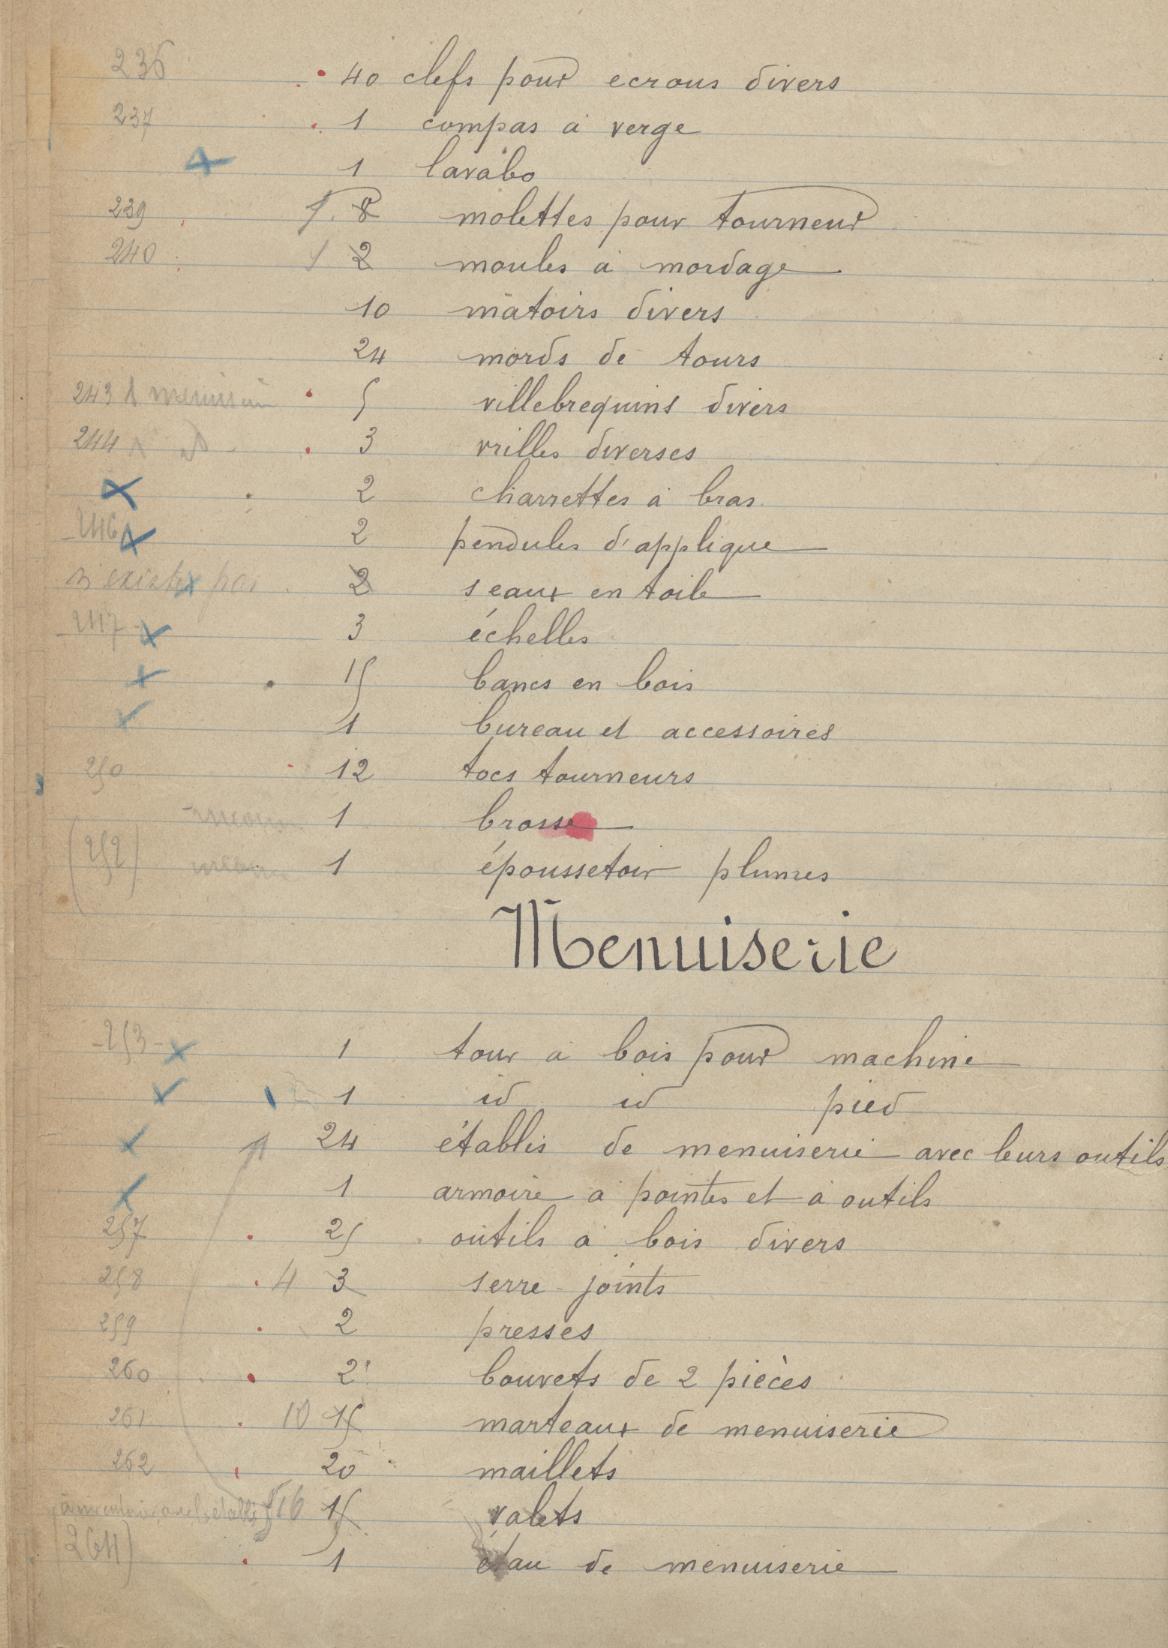 236 40 clefs pour ecrous divers
237 1 compas à verge
1 lavabo
239 8 molettes pour tourneur
240 2 moules à mordage
10 matoirs divers
24 mords de tours
243 5 villebrequins divers
244 3 vrilles diverses
2 charrettes à bras
246 2 pendules d'applique
n'existe pas 2 seaux en toile
247 3 échelles
15 bancs en bois
1 bureau et accessoires
250 12 tocs tourneurs
1 brosse
(252) 1 époussetoir plumes
Menuiserie
253 1 tour à bois pour machine
1 id id pied
24 établis de menuiserie avec leurs outils
1 armoire à pointes et à outils
257 25 outils à bois divers
258 4 3 serre-joints
259 2 presses
260 2 bouvets de 2 pièces
261 10 15 marteaux de menuiserie
262 20 maillets
16 15 valets
(264) 1 étau de menuiserie